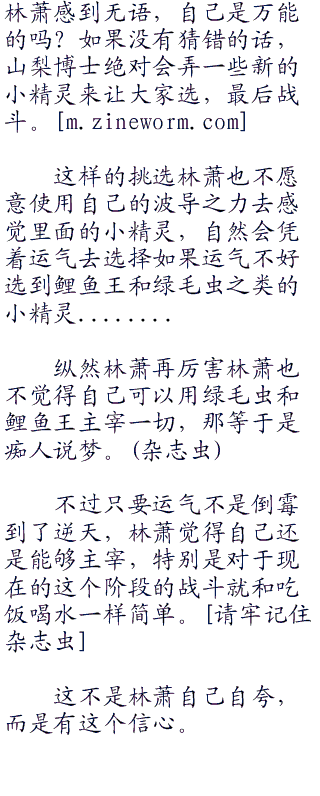 林萧感到无语，自己是万能
的吗？如果没有猜错的话，
山梨博士绝对会弄一些新的
小精灵来让大家选，最后战
斗。[m.zineworm.com]
这样的挑选林萧也不愿
意使用自己的波导之力去感
觉里面的小精灵，自然会凭
着运气去选择如果运气不好
选到鲤鱼王和绿毛虫之类的
小精灵........
纵然林萧再厉害林萧也
不觉得自己可以用绿毛虫和
鲤鱼王主宰一切，那等于是
痴人说梦。(杂志虫)
不过只要运气不是倒霉
到了逆天，林萧觉得自己还
是能够主宰，特别是对于现
在的这个阶段的战斗就和吃
饭喝水一样简单。[请牢记住
杂志虫]
这不是林萧自己自夸，
而是有这个信心。